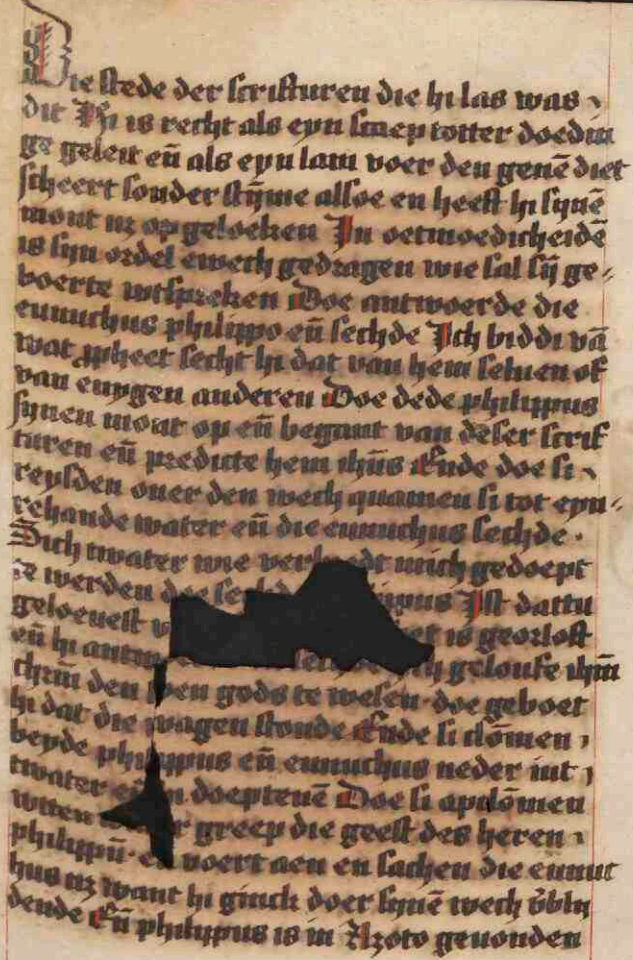 Die stede der scrifturen die hi las was
dit Hi is recht als eyn scaep totter doedin
ge geleit en̄ als eyn lam voer den genē diet
scheert sonder stȳme alsoe en heeft hi synē
mont nz op geloeken In oetmoedicheidē
is syn ordel ewech gedragen wie sal sȳ ge
voerte wtspreken Doe antwoerde die
eunuchus philippo en̄ sechde Ich biddi vā
wat ꝓpheet secht hi dat van hem seluen of
van enygen anderen Doe dede philippus
synen mont op en̄ begant van deser scrif
turen en̄ predicte hem ihūs Ende doe si
reysden ouer den wech quamen si tot eyn
rehande water en̄ die eunuchus sechde
Sich twater wie mich gedoept
te werden doe Ist dattu
geloeuest is georloft
en̄ hi geloufe ihm̄
chrm̄ den soen gods te wesen doe geboet
hi dat die wagen stonde Ende si clōmen
beyde philippus en̄ eunuchus neder int
twater doeptenē Doe si apclōmen
wtten greep die geest des heren
philippū voert aen en sachen die eunut
hus nz want hi ginck doer synē wech v̄bly
dende En̄ philippus is in Azoto geuonden